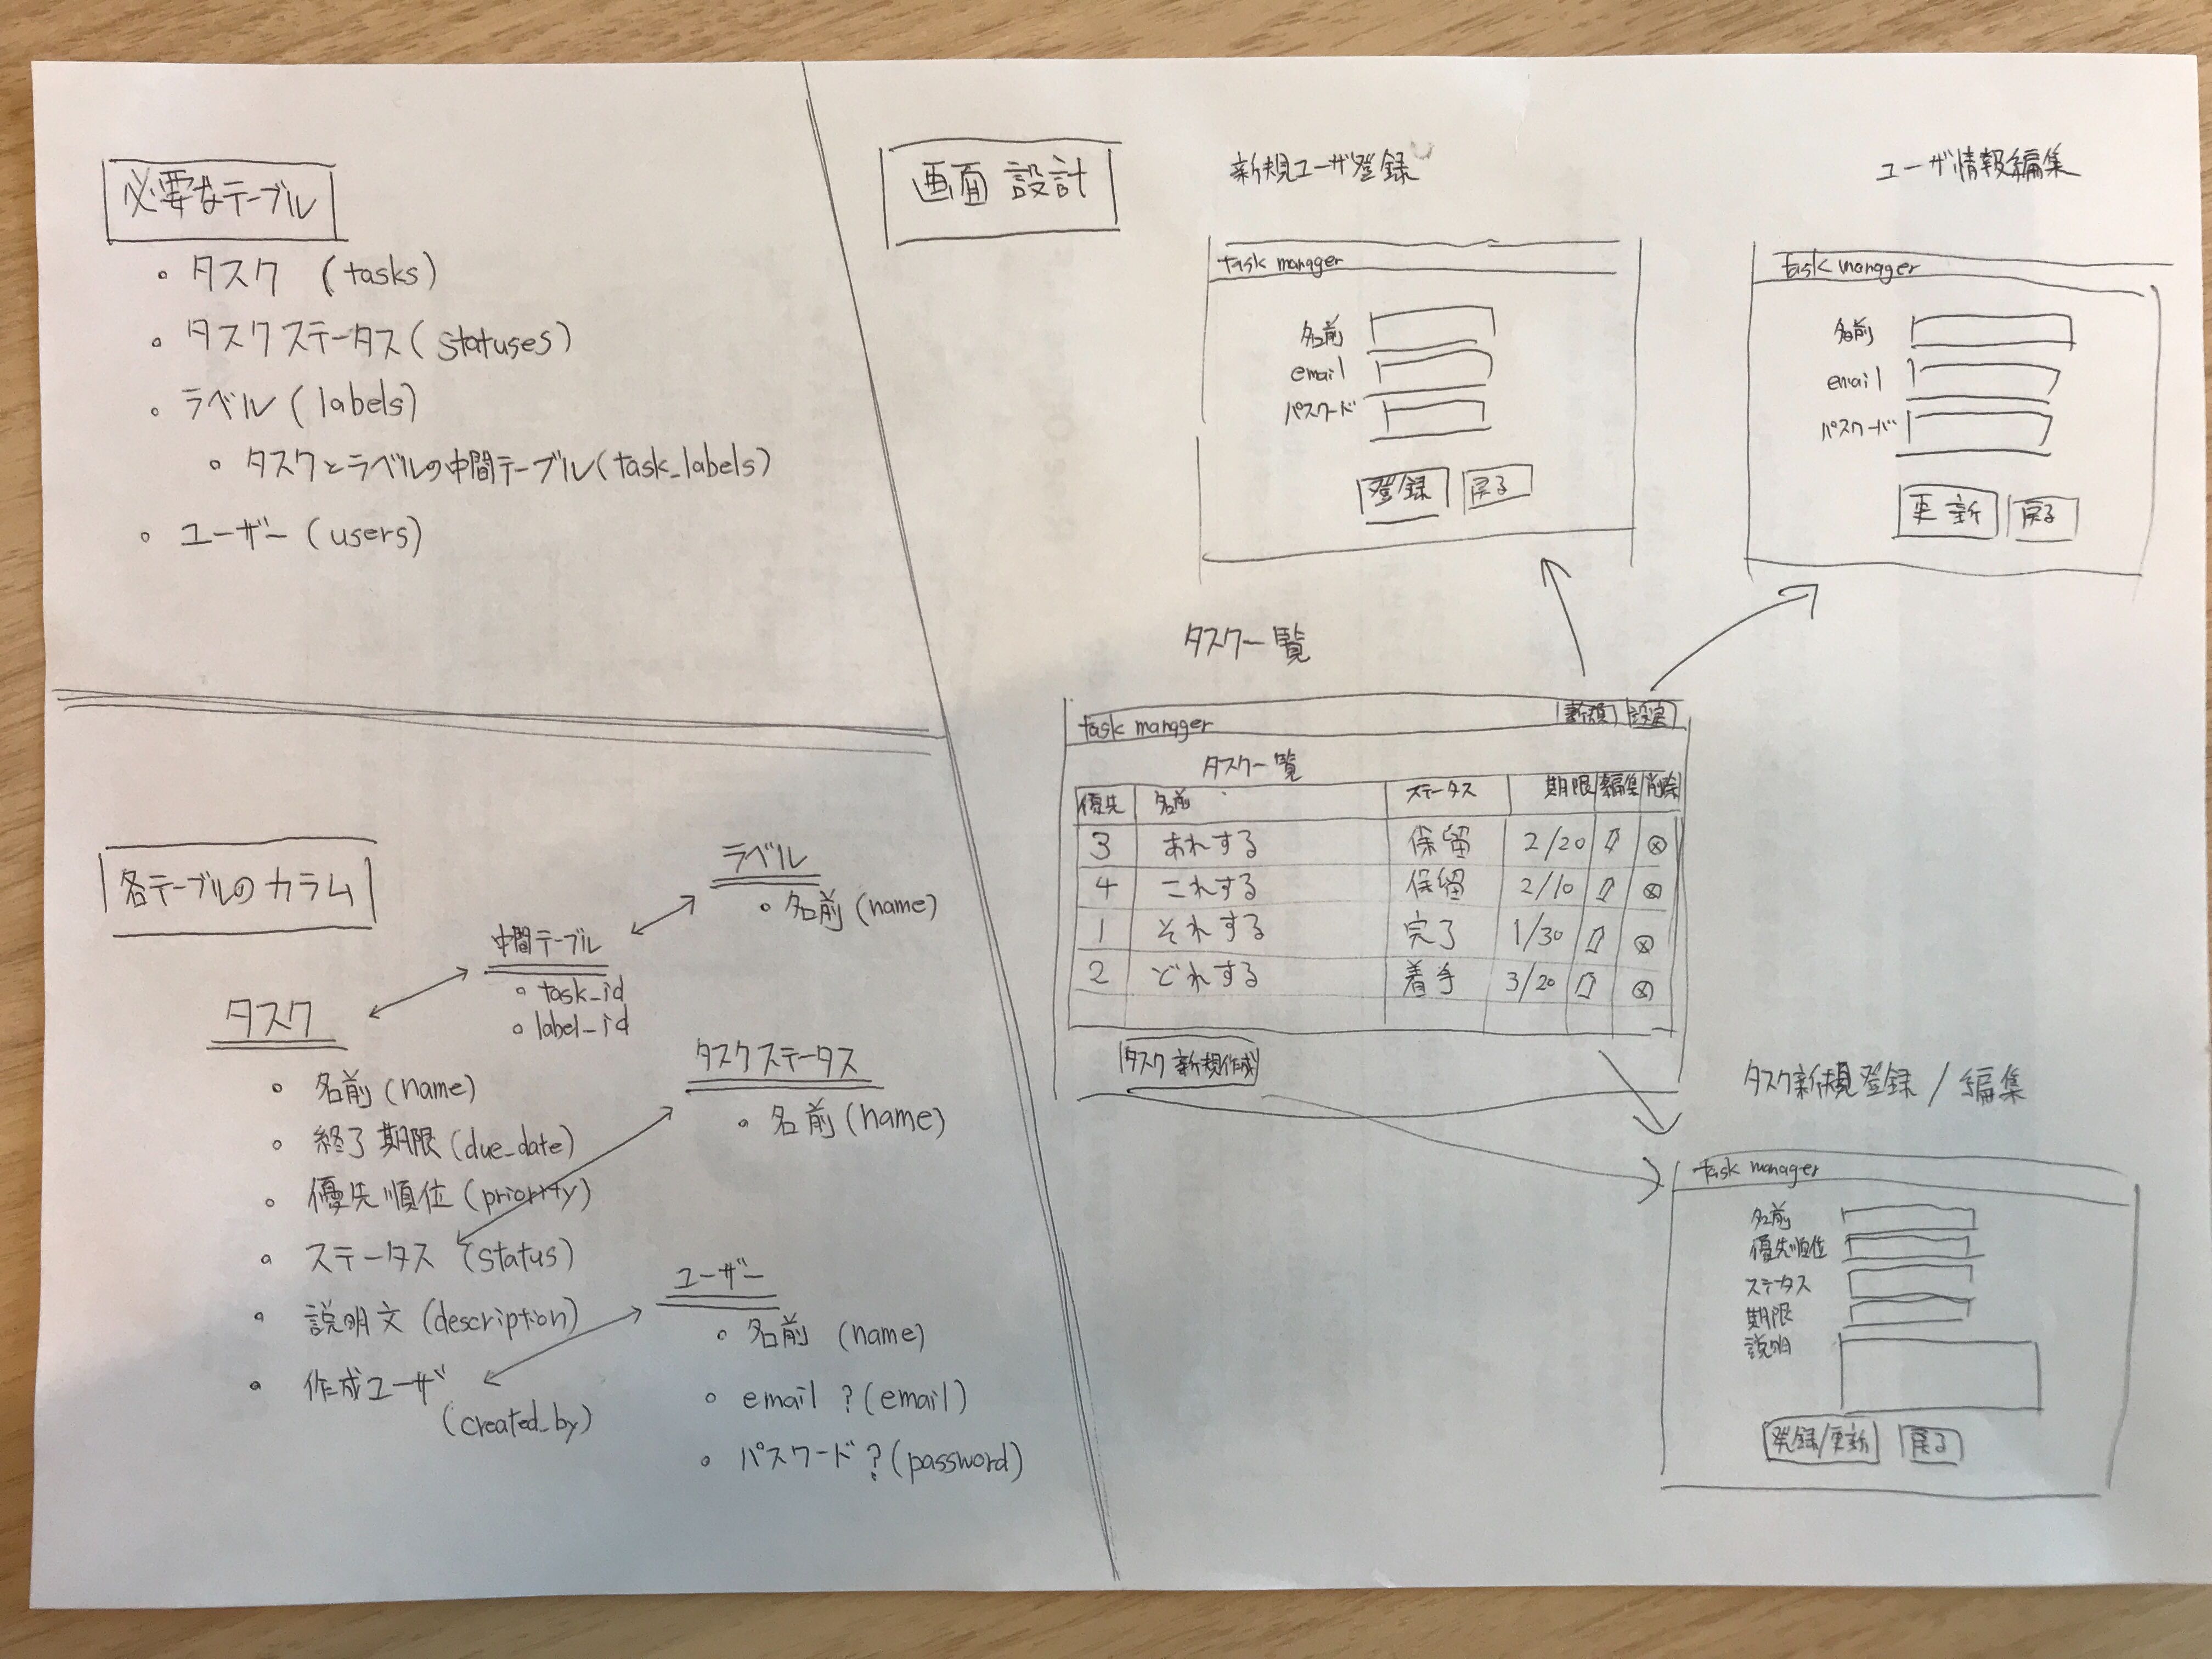 必要なテーブル
・タスク (tasks)
・タスクステータス (statuses)
・ラベル (labels)
・タスクとラベルの中間テーブル (task_labels)
・ユーザー (users)
各テーブルのカラム
ラベル
・名前 (name)
中間テーブル
・task_id
・label_id
タスク
・名前 (name)
・終了期限 (due_date)
・優先順位 (priority)
・ステータス (status)
・説明文 (description)
・作成ユーザ
(created_by)
タスクステータス
・名前 (name)
ユーザー
・名前 (name)
・email ? (email)
・パスワード ? (password)
画面設計
新規ユーザ登録
task manager
名前
email
パスワード
登録 戻る
ユーザ情報編集
task manager
名前
email
パスワード
更新 戻る
タスク一覧
task manager 新規 設定
タスク一覧
優先 名前 ステータス 期限 編集 削除
3 あれする 保留 2/20
4 これする 保留 2/10
1 それする 完了 1/30
2 どれする 着手 3/20
タスク新規作成
タスク新規登録 / 編集
task manager
名前
優先順位
ステータス
期限
説明
登録/更新 戻る